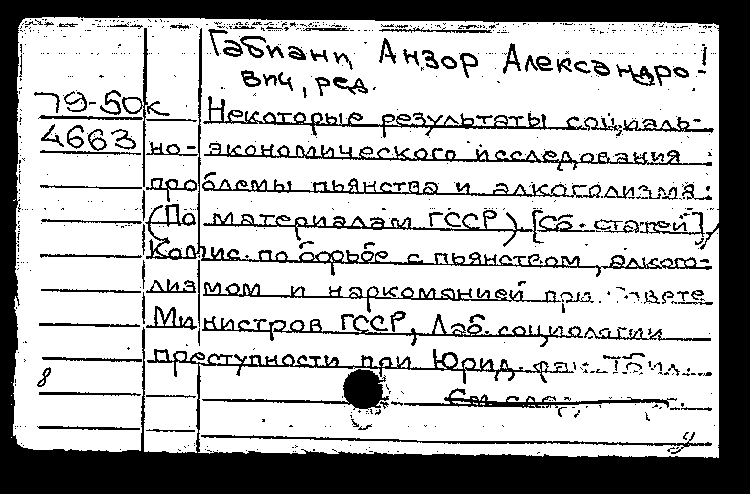 Габиани Анзор Александро-!
впч, ред.
79-50к Некоторые результаты социаль-
4663 но-экономического исследования
проблемы пьянства и алкоголизма:
(По материалам ГССР). [Сб. статей]/
Комис. по борьбе с пьянством, алкого-
лизмом и наркоманией при Совете
Министров ГССР, Лаб. социологии
преступности при Юрид. фак. Тбил.
8
См. след.